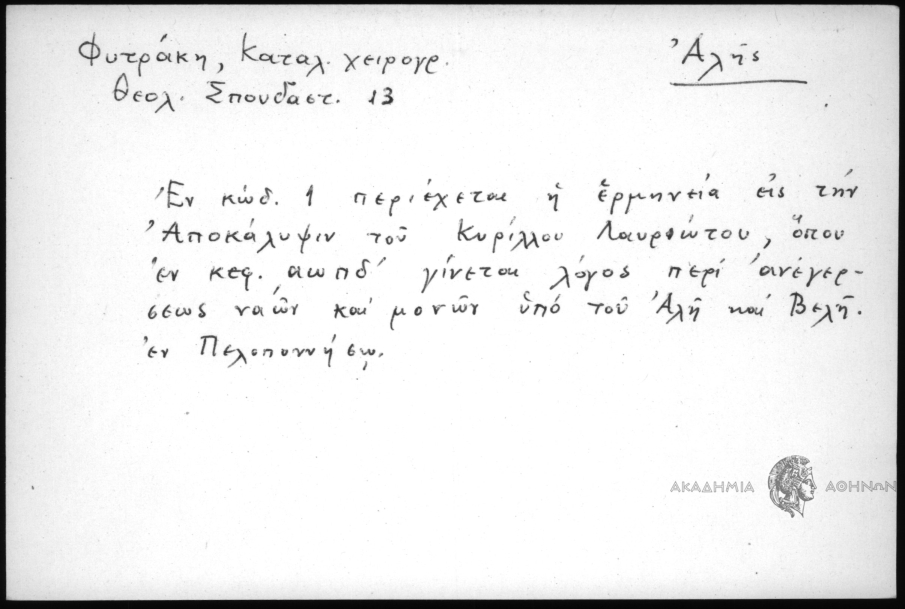 Φυτράκη, Καταλ. χειρογρ. Ἀλῆς
Θεολ. Σπουδαστ. 13
Ἐν κώδ. 1 περιέχεται ἡ ἑρμηνεία εἰς τὴν
Ἀποκάλυψιν τοῦ Κυρίλλου Λαυριώτου, ὅπου
ἐν κεφ. αωπδ΄ γίνεται λόγος περὶ ἀνεγέρ-
σεως ναῶν καὶ μονῶν ὑπὸ τοῦ Ἀλῆ καὶ Βελῆ.
ἐν Πελοποννήσῳ.
ΑΚΑΔΗΜΙΑ ΑΘΗΝΩΝ